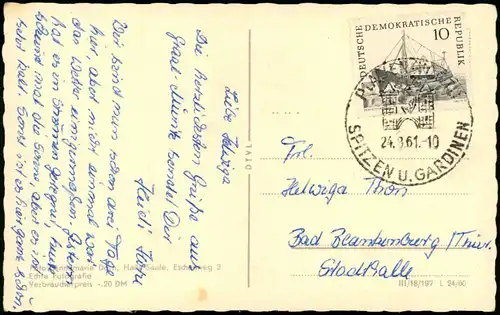 Liebe Helwiga
Die herzlichsten Grüße aus
Graal-Müritz sendet Dir
Heidi
Wir sind nun schon drei Tage
hier, aber nicht einmal war
das Wetter einigermaßen. Gestern
hat es in Strömen geregnet, heute
scheint mal die Sonne, aber es ist
sehr kalt. Sonst ist es hier ganz schön.
DTVL
Foto: Annemarie
Echte Fotografie
Verbraucherpreis -.20 DM
DEUTSCHE DEMOKRATISCHE REPUBLIK
10
PLAUEN
24.9.61.-10
SPITZEN U. GARDINEN
Frl.
Helwiga Thon
Bad Blankenburg/Thür.
Stadthalle
III/18/197 L 24/60